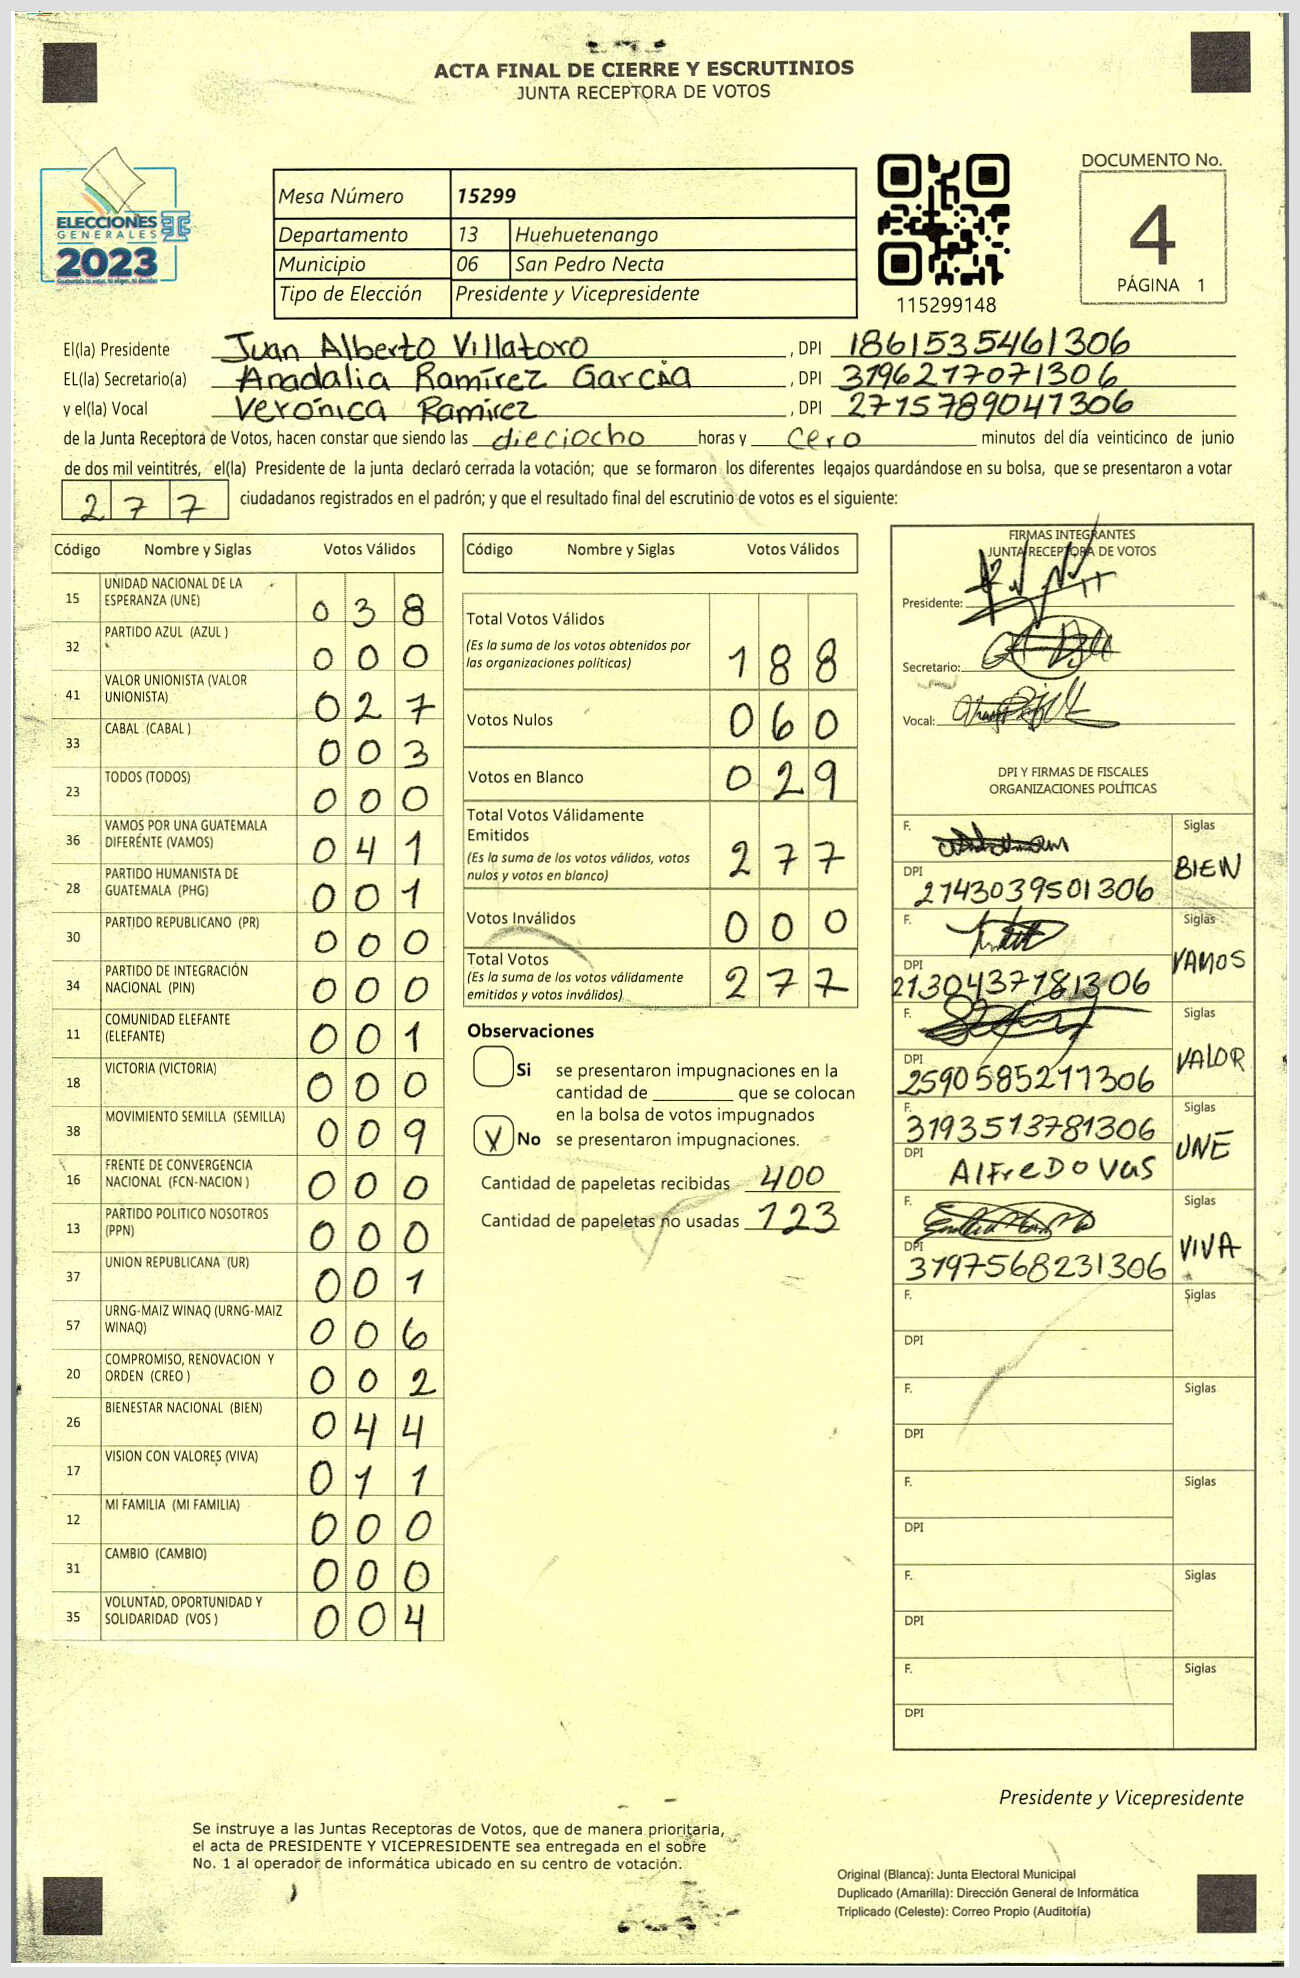 ACTA FINAL DE CIERRE Y ESCRUTINIOS
JUNTA RECEPTORA DE VOTOS
ELECCIONES
GENERALES
2023
Mesa Número 15299
Departamento 13 Huehuetenango
Municipio 06 San Pedro Necta
Tipo de Elección Presidente y Vicepresidente
115299148
DOCUMENTO No.
4
PÁGINA 1
El(la) Presidente Juan Alberto Villatoro , DPI 1861535461306
EL(la) Secretario(a) Anadalia Ramírez García , DPI 3196217071306
y el(la) Vocal Verónica Ramirez , DPI 2715789041306
de la Junta Receptora de Votos, hacen constar que siendo las dieciocho horas y cero minutos del día veinticinco de junio
de dos mil veintitrés, el(la) Presidente de la junta declaró cerrada la votación; que se formaron los diferentes legajos guardándose en su bolsa, que se presentaron a votar
277 ciudadanos registrados en el padrón; y que el resultado final del escrutinio de votos es el siguiente:
Código Nombre y Siglas Votos Válidos
15 UNIDAD NACIONAL DE LA ESPERANZA (UNE) 038
32 PARTIDO AZUL (AZUL ) 000
41 VALOR UNIONISTA (VALOR UNIONISTA) 027
33 CABAL (CABAL ) 003
23 TODOS (TODOS) 000
36 VAMOS POR UNA GUATEMALA DIFERENTE (VAMOS) 041
28 PARTIDO HUMANISTA DE GUATEMALA (PHG) 001
30 PARTIDO REPUBLICANO (PR) 000
34 PARTIDO DE INTEGRACIÓN NACIONAL (PIN) 000
11 COMUNIDAD ELEFANTE (ELEFANTE) 001
18 VICTORIA (VICTORIA) 000
38 MOVIMIENTO SEMILLA (SEMILLA) 009
16 FRENTE DE CONVERGENCIA NACIONAL (FCN-NACION ) 000
13 PARTIDO POLITICO NOSOTROS (PPN) 000
37 UNION REPUBLICANA (UR) 001
57 URNG-MAIZ WINAQ (URNG-MAIZ WINAQ) 006
20 COMPROMISO, RENOVACION Y ORDEN (CREO ) 002
26 BIENESTAR NACIONAL (BIEN) 044
17 VISION CON VALORES (VIVA) 011
12 MI FAMILIA (MI FAMILIA) 000
31 CAMBIO (CAMBIO) 000
35 VOLUNTAD, OPORTUNIDAD Y SOLIDARIDAD (VOS ) 004
Código Nombre y Siglas Votos Válidos
Total Votos Válidos 188
(Es la suma de los votos obtenidos por
las organizaciones políticas)
Votos Nulos 060
Votos en Blanco 029
Total Votos Válidamente
Emitidos 277
(Es la suma de los votos válidos, votos
nulos y votos en blanco)
Votos Inválidos 000
Total Votos 277
(Es la suma de los votos válidamente
emitidos y votos inválidos)
Observaciones
Si se presentaron impugnaciones en la
cantidad de ________ que se colocan
en la bolsa de votos impugnados
X No se presentaron impugnaciones.
Cantidad de papeletas recibidas 400
Cantidad de papeletas no usadas 123
FIRMAS INTEGRANTES
JUNTA RECEPTORA DE VOTOS
Presidente:
Secretario:
Vocal:
DPI Y FIRMAS DE FISCALES
ORGANIZACIONES POLÍTICAS
F. Siglas
DPI 2143039501306 BIEN
F. Siglas
DPI 2130437181306 VAMOS
F. Siglas
DPI 2590585211306 VALOR
F. 3193513781306 Siglas
DPI AlfreDo Vas UNE
F. Siglas
DPI 3197568231306 VIVA
F. Siglas
DPI
F. Siglas
DPI
F. Siglas
DPI
F. Siglas
DPI
F. Siglas
DPI
Presidente y Vicepresidente
Se instruye a las Juntas Receptoras de Votos, que de manera prioritaria,
el acta de PRESIDENTE Y VICEPRESIDENTE sea entregada en el sobre
No. 1 al operador de informática ubicado en su centro de votación.
Original (Blanca): Junta Electoral Municipal
Duplicado (Amarilla): Dirección General de Informática
Triplicado (Celeste): Correo Propio (Auditoría)